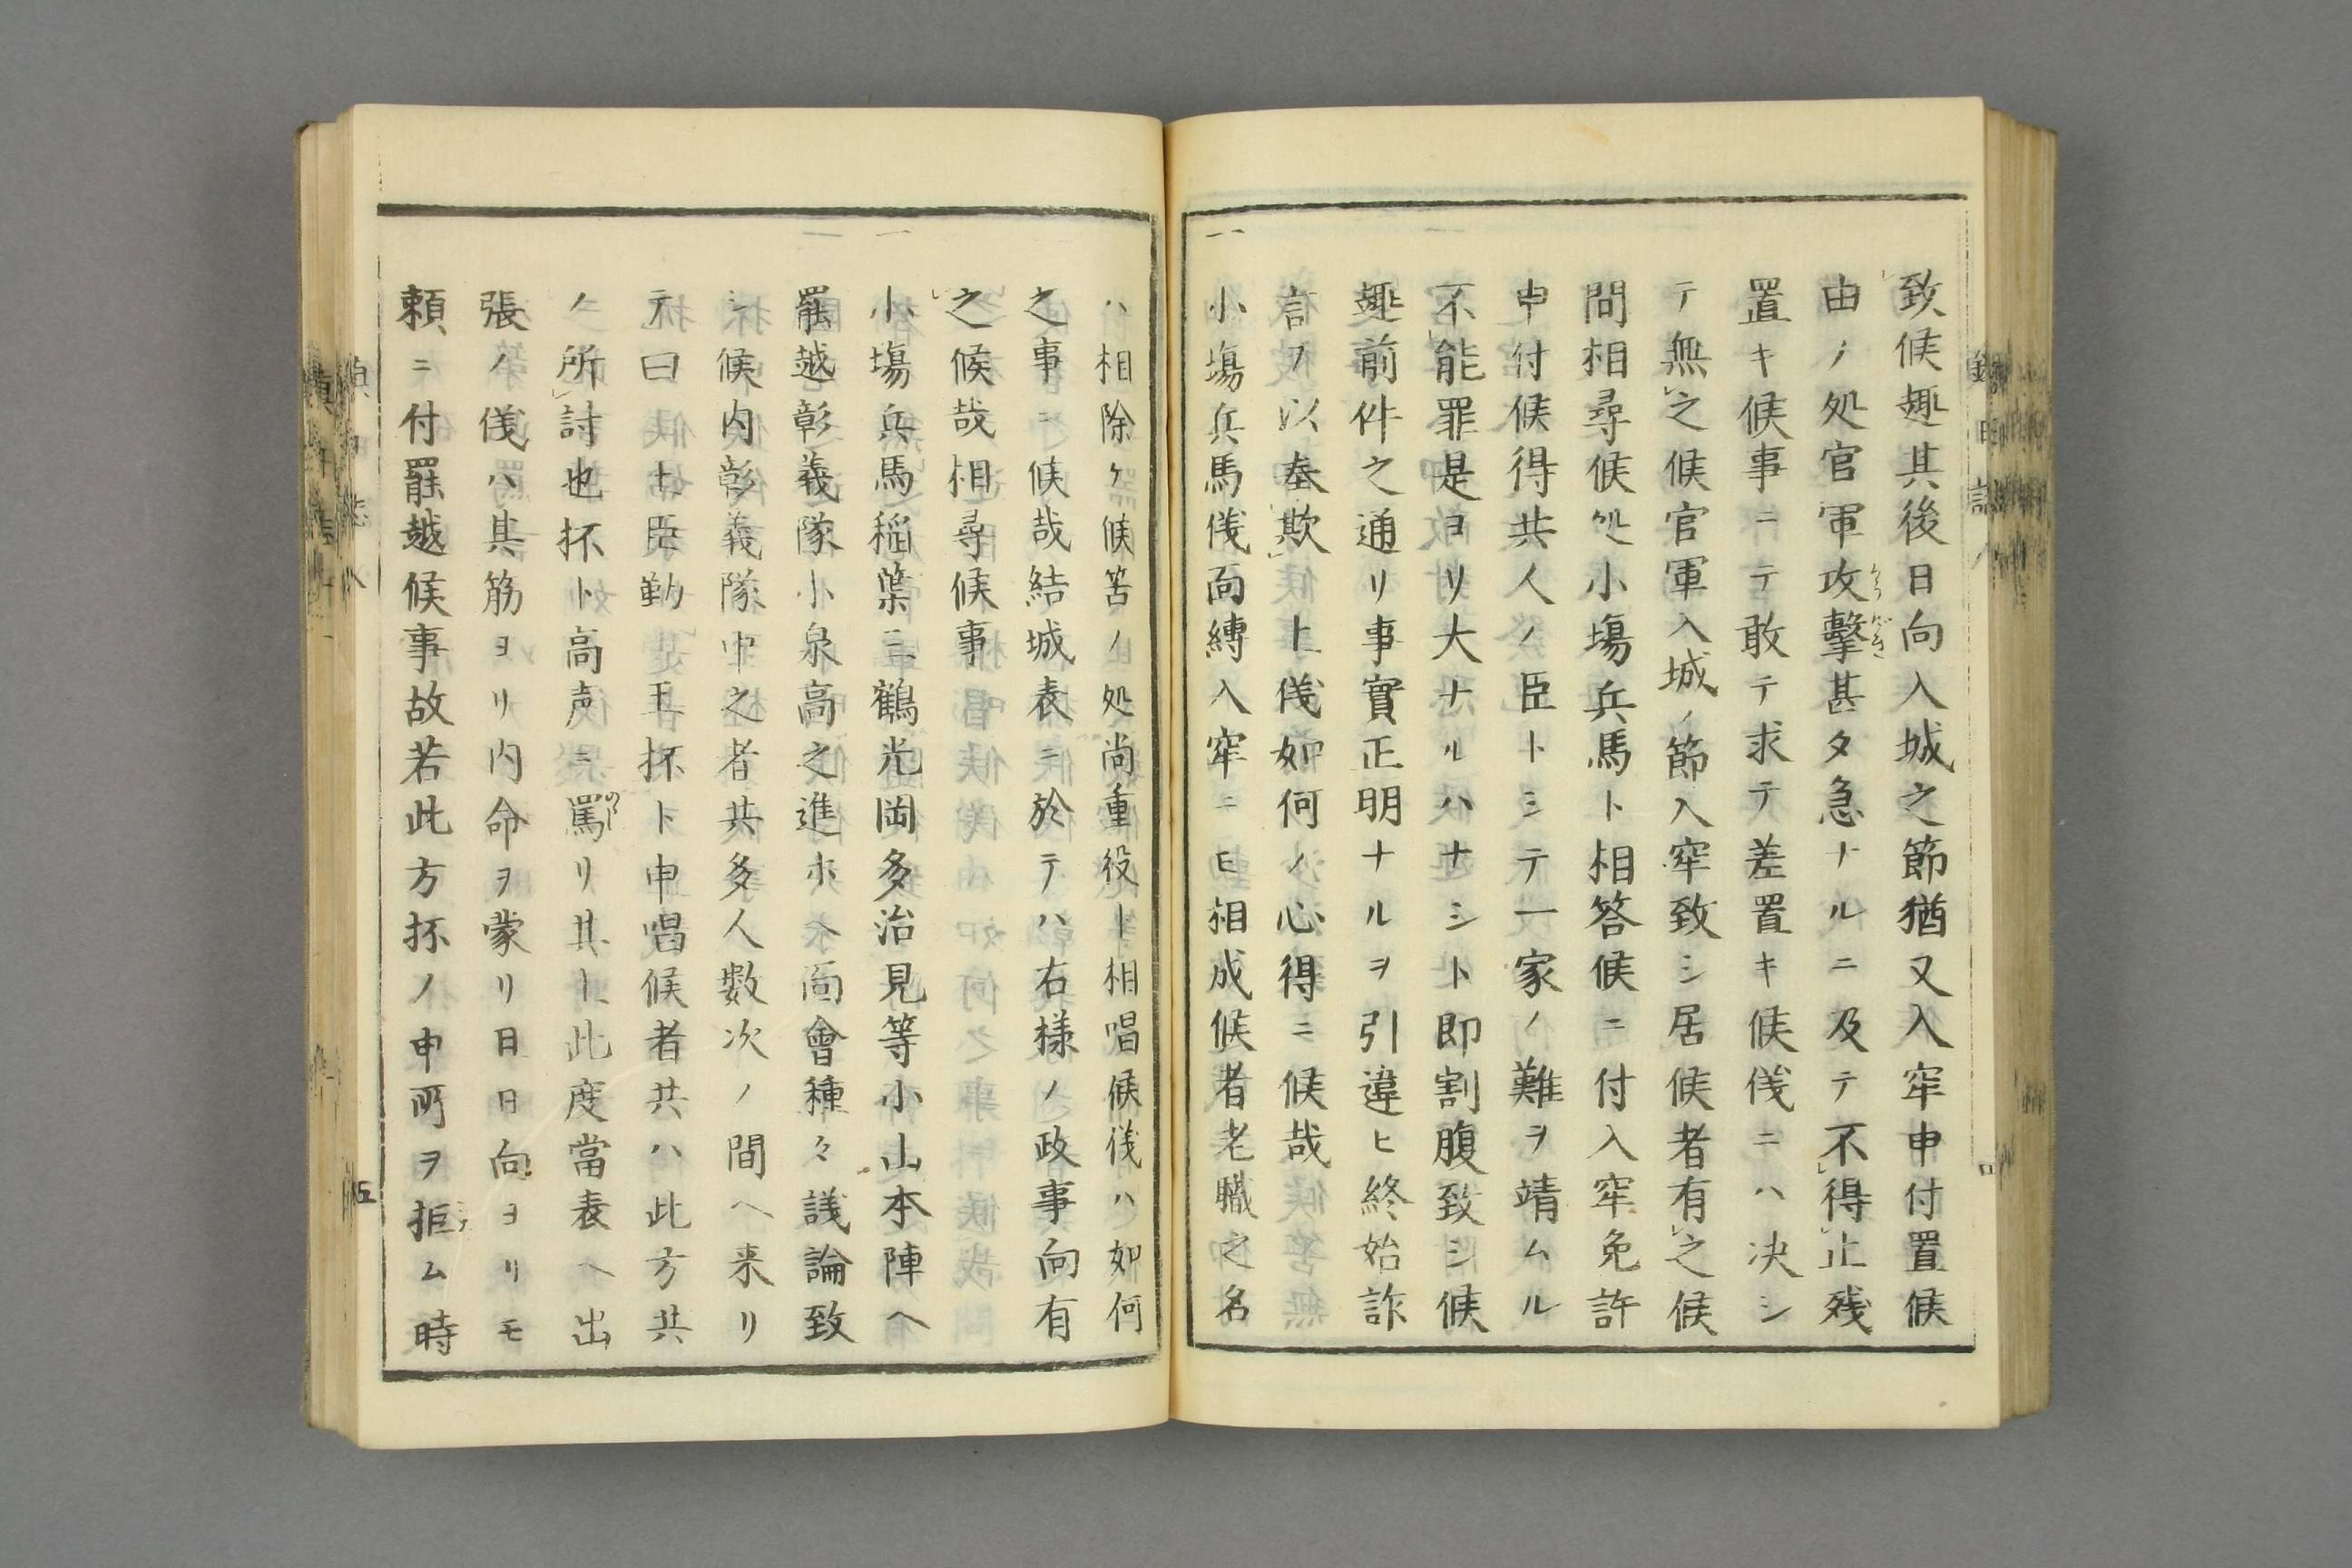 致候趣其後日向入城之節猶又入牢申付置候
由ノ処官軍攻擊甚タ急ナルニ及テ不得止残
置キ候事ニテ敢テ求テ差置キ候儀ニハ决シ
テ無之候官軍入城ノ節入牢致シ居候者有之候
問相尋候処小塲兵馬ト相答候ニ付入牢免許
申付候得共人ノ臣トシテ一家ノ難ヲ靖ムル
不能罪是ヨリ大ナルハナシト即割腹致シ候
趣前件之通リ事實正明ナルヲ引違ヒ終始詐
言ヲ以奉欺候上儀如何ノ心得ニ候哉
一小塲兵馬儀面縛入牢ニモ相成候者老職之名
ハ相除ケ候筈ノ処尚重役ト相唱候儀ハ如何
之事ニ候哉結城表ニ於テハ右様ノ政事向有
之候哉相尋候事
一小塲兵馬稲葉三鶴光岡多治見等小山本陣ヘ
罷越彰義隊小泉高之進ホ令面會種々議論致
シ候内彰義隊中之者共多人數次ノ間ヘ来リ
テ曰上臣勤王抔ト申唱候者共ハ此方共
ノ所討也抔ト高声ニ罵リ其上此度當表ヘ出
張ノ儀ハ其筋ヨリ内命ヲ蒙リ日日向ヨリモ
頼ニ付罷越候事故若此方抔ノ申所ヲ拒ム時
五